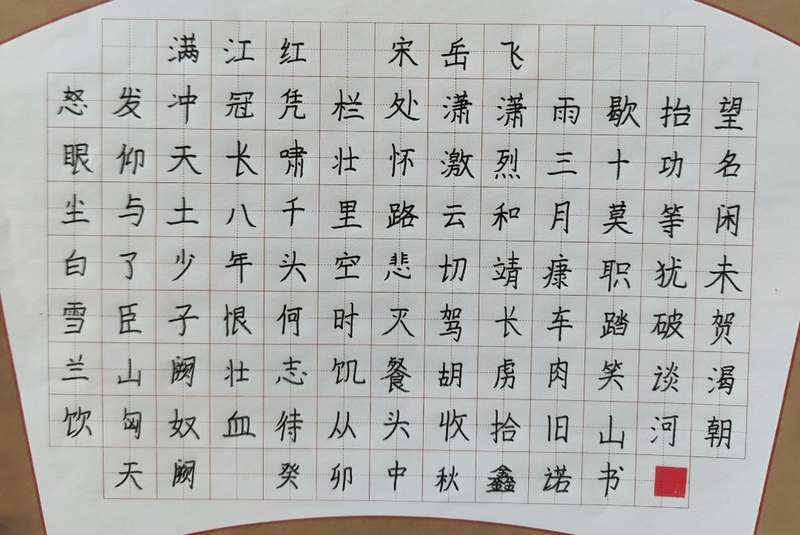 满江红 宋岳飞
怒发冲冠凭栏处潇潇雨歇抬望
眼仰天长啸壮怀激烈三十功名
尘与土八千里路云和月莫等闲
白了少年头空悲切靖康职犹未
雪臣子恨何时灭驾长车踏破贺
兰山阙壮志饥餐胡虏肉笑谈渴
饮匈奴血待从头收拾旧山河朝
天阙 癸卯中秋鑫诺书